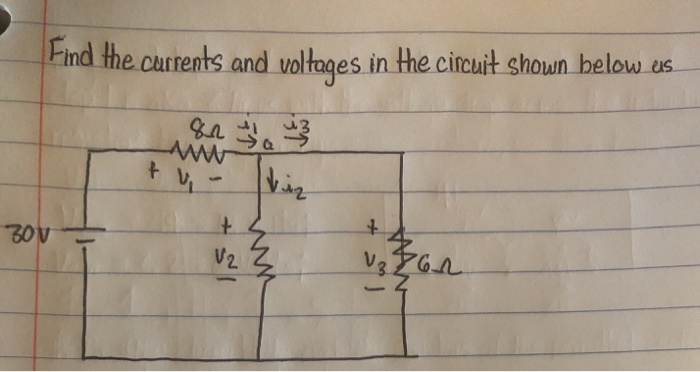 Find the currents and voltages in the circuit shown below us
8Ω i1 a i3
+ v1 -
i2
30V
+
v2
-
+
v3 6Ω
-